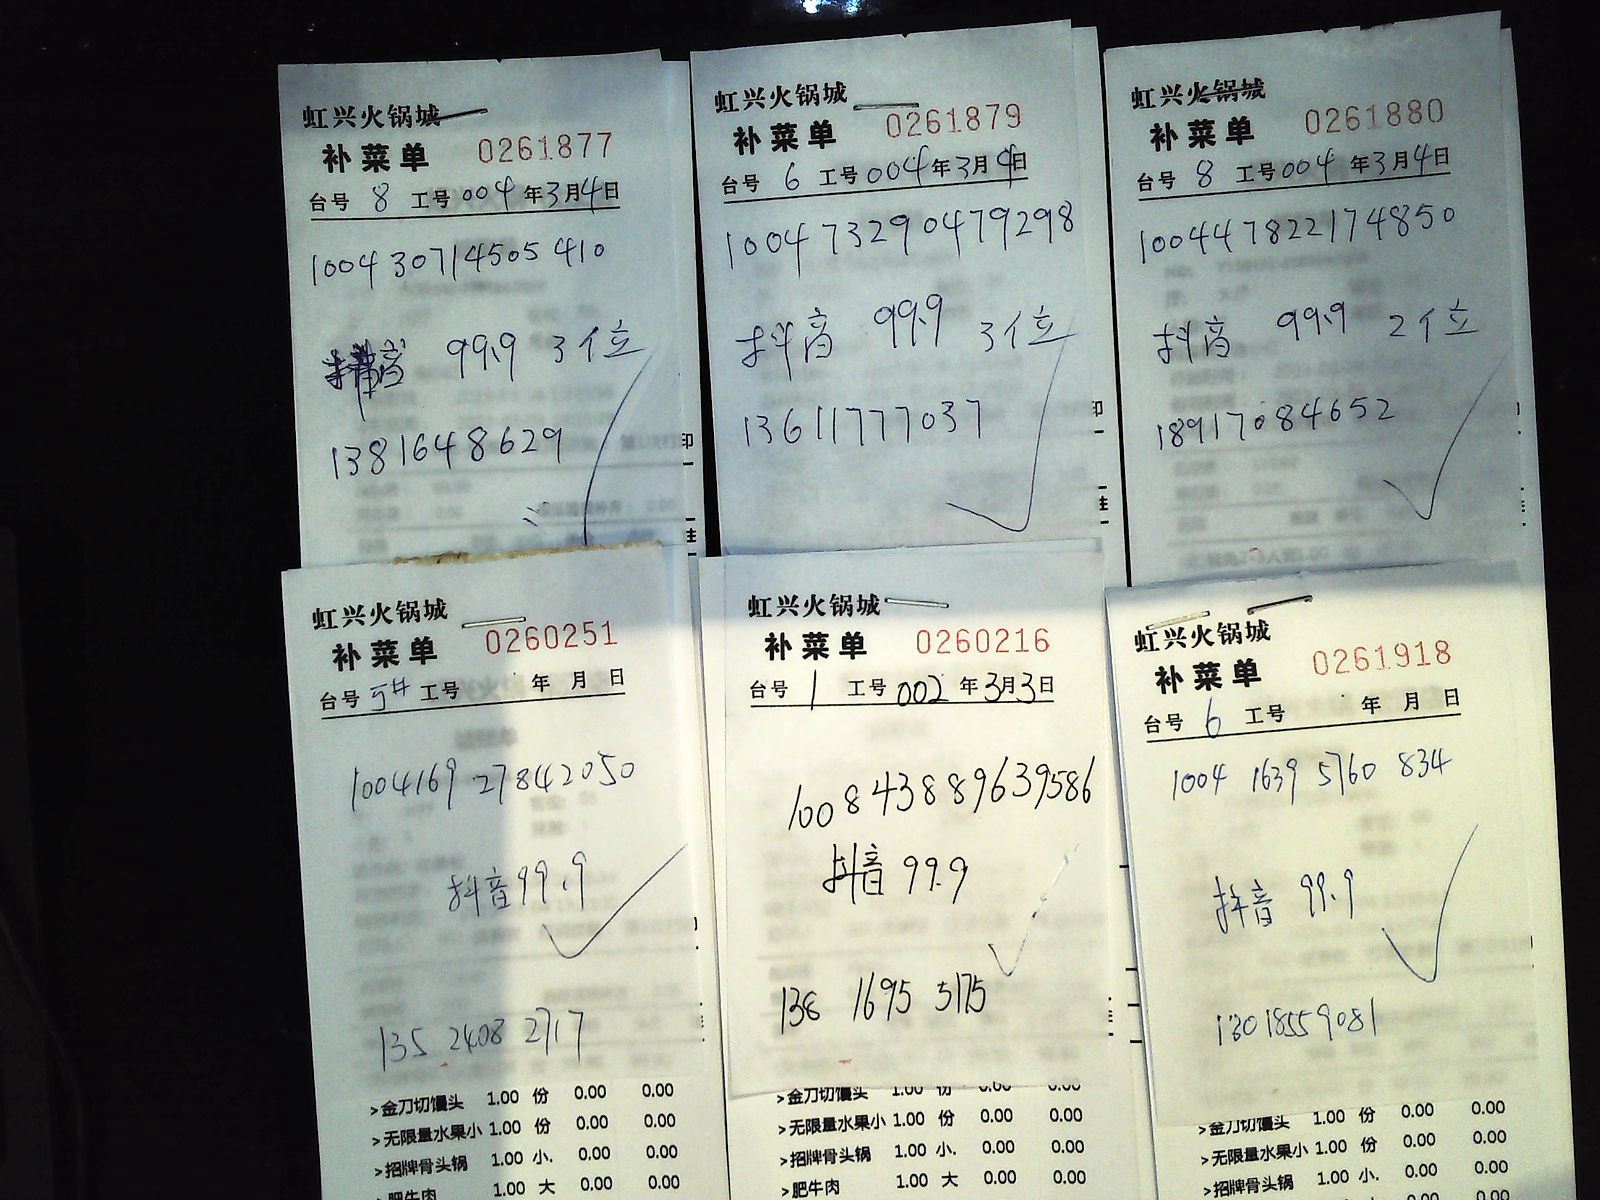 虹兴火锅城
补菜单 0261877
台号 8 工号 004 年 3月4日
1004 30714505 410
抖音 99.9 3位
13816448629
虹兴火锅城
补菜单 0261879
台号 6 工号 004 年 3月4日
1004 73290479298
抖音 99.9 3位
13611777037
虹兴火锅城
补菜单 0261880
台号 8 工号 004 年 3月4日
1004478221748 50
抖音 99.9 2位
18917084652
印
印
虹兴火锅城
补菜单 0260251
台号 5# 工号 年 月 日
1004169 27842050
抖音 99.9
135 2408 2717
>金刀切馒头 1.00 份 0.00 0.00
>无限量水果小 1.00 份 0.00 0.00
>招牌骨头锅 1.00 小. 0.00 0.00
>肥牛肉 1.00 大 0.00 0.00
虹兴火锅城
补菜单 0260216
台号 1 工号 002 年 3月3日
1008438896 39586
抖音 99.9
138 1695 5175
>金刀切馒头 1.00 份 0.00 0.00
>无限量水果小 1.00 份 0.00 0.00
>招牌骨头锅 1.00 小. 0.00 0.00
>肥牛肉 1.00 大 0.00 0.00
虹兴火锅城
补菜单 0261918
台号 6 工号 年 月 日
1004 1639 5760 834
抖音 99.9
13018559081
>金刀切馒头 1.00 份 0.00 0.00
>无限量水果小 1.00 份 0.00 0.00
>招牌骨头锅 1.00 小. 0.00 0.00